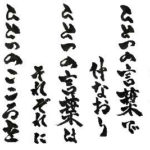 ひとつの言葉で
仲なおり
ひとつの言葉は
それぞれに
ひとつのこころを